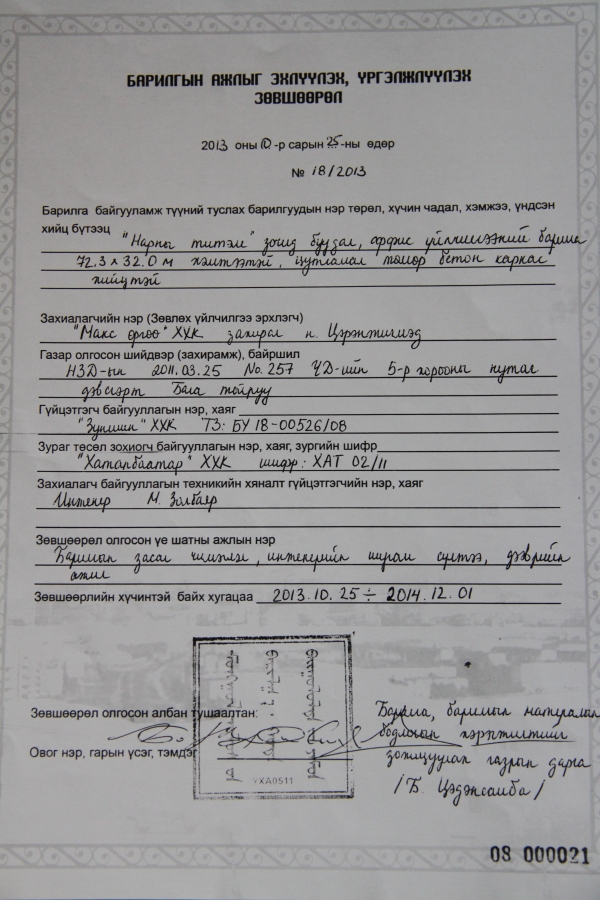 БАРИЛГЫН АЖЛЫГ ЭХЛҮҮЛЭХ, ҮРГЭЛЖЛҮҮЛЭХ
ЗӨВШӨӨРӨЛ
2013 оны 10-р сарын 25-ны өдөр
№ 18/2013
Барилга байгууламж түүний туслах барилгуудын нэр төрөл, хүчин чадал, хэмжээ, үндсэн
хийц бүтээц "Нарны титэм" зочид буудал, оффис үйлчилгээний барилга
72.3 x 32.0 м хэмжээтэй, цутгамал төмөр бетон каркас
хийцтэй
Захиалагчийн нэр (Зөвлөх үйлчилгээ эрхлэгч)
"Макс өргөө" ХХК захирал н. Цэрэнжигмэд
Газар олгосон шийдвэр (захирамж), байршил
НЗД-ын 2011.03.25 No.257 ЧД-ийн 5-р хорооны нутаг
дэвсгэрт Бага тойруу
Гүйцэтгэгч байгууллагын нэр, хаяг
ХХК ТЗ: БУ 18-00526/08
Зураг төсөл зохиогч байгууллагын нэр, хаяг, зургийн шифр
"Хатанбаатар" ХХК шифр: ХАТ 02/11
Захиалагч байгууллагын техникийн хяналт гүйцэтгэгчийн нэр, хаяг
Инженер М. Золбаяр
Зөвшөөрөл олгосон үе шатны ажлын нэр
Барилгын засал чимэглэл, инженерийн шугам сүлжээ, дээврийн
ажил
Зөвшөөрлийн хүчинтэй байх хугацаа 2013.10.25 ÷ 2014.12.01
Зөвшөөрөл олгосон албан тушаалтан:
Овог нэр, гарын үсэг, тэмдэг
YXA0511
Барилга, барилгын материалын
бодлогын хэрэгжилтийг
зохицуулах газрын дарга
/Б. Цэдэнсамба/
08 000021